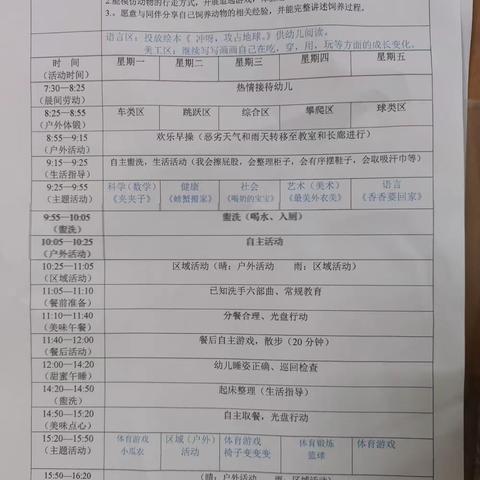 3.。愿意与同伴分享自己饲养动物的相关经验，并能完整讲述饲养过程。
语言区：投放绘本《 冲呀，攻占地球。》供幼儿阅读。
美工区：继续写写画画自己在吃，穿，用，玩等方面的成长变化。
时 间
（活动时间） 星期一 星期二 星期三 星期四 星期五
7:30—8:25
（晨间劳动） 热情接待幼儿
8:25—8:55
（户外体锻） 车类区 跳跃区 综合区 攀爬区 球类区
8:55—9:15
（户外活动） 欢乐早操（恶劣天气和雨天转移至教室和长廊进行）
9:15—9:25
（生活指导） 自主盥洗，生活活动（我会擦屁股，会整理柜子，会有序摆鞋子，会取吸汗巾等）
9:25—9:55
（主题活动） 科学（数学）
《夹夹子》 健康
《螃蟹搬家》 社会
《喝奶的宝宝》 艺术（美术）
《最美外衣美》 语言
《香香要回家》
9:55—10:05
（盥洗） 盥洗（喝水、入厕）
10:05—10:25
（户外活动） 自主活动
10:25—11:05
（区域活动） 区域活动（晴：户外活动 雨：区域活动）
11:05—11:10
（餐前准备） 已知洗手六部曲、常规教育
11:10—11:40
（美味午餐） 分餐合理、光盘行动
11:40—12:00
（餐后活动） 餐后自主游戏，散步（20 分钟）
12:00—14:20
（甜蜜午睡） 幼儿睡姿正确、巡回检查
14:20—14:50
（盥洗） 起床整理（生活指导）
14:50—15:20
（美味点心） 自主取餐，光盘行动
15:20—15:50
（主题活动） 体育游戏
小瓜农 区域（户外）
活动 体育游戏
椅子变变变 体育锻炼
篮球 体育游戏
15:50—16:20 （晴：户外活动 雨：区域活动）